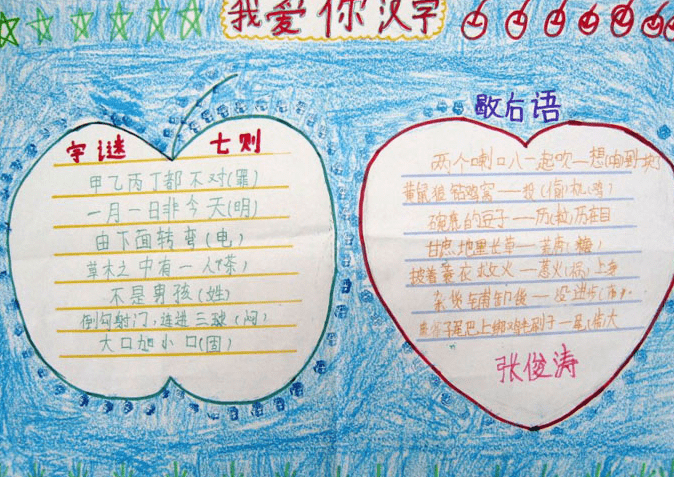 我爱你汉字
字谜 七则
甲乙丙丁都不对(罪)
一月一日非今天(明)
由下面转弯(电)
草木之中有一人(茶)
不是男孩(姓)
倒勾射门,连进三球(闷)
大口加小口(回)
歇后语
两个喇叭一起吹—想(响)到一块
黄鼠狼钻鸡窝——投(偷)机(鸡)
碗底的豆子——历(粒)历在目
甘庶地里长草——荒唐(糖)
披着蓑衣救火——惹火(祸)上身
杂货铺卸货——没进步(布)
尾巴上绑鸡毛
张俊涛